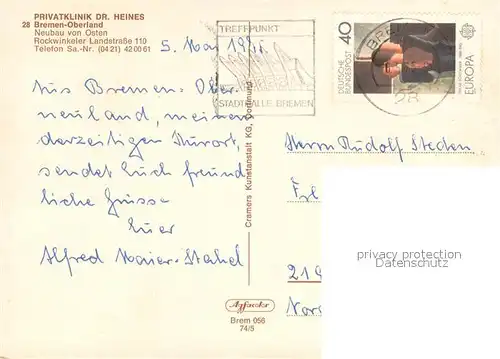 PRIVATKLINIK DR. HEINES
28 Bremen-Oberland
Neubau von Osten
Rockwinkeler Landstraße 110
Telefon Sa.-Nr. (04 21) 42 00 61
5. Mai 1975
TREFFPUNKT
STADTHALLE BREMEN
40
DEUTSCHE BUNDESPOST
EUROPA
BRE
28
Aus Bremen-Ober-
neuland, meinem
derzeitigen Kurort,
sendet Euch freund-
liche Grüsse
Euer
Alfred Maier-Stahel
Cramers Kunstanstalt KG, Dortmund
Herrn Rudolf Steden
privacy protection
Datenschutz
219
Agfacolor
Brem 056
74/5